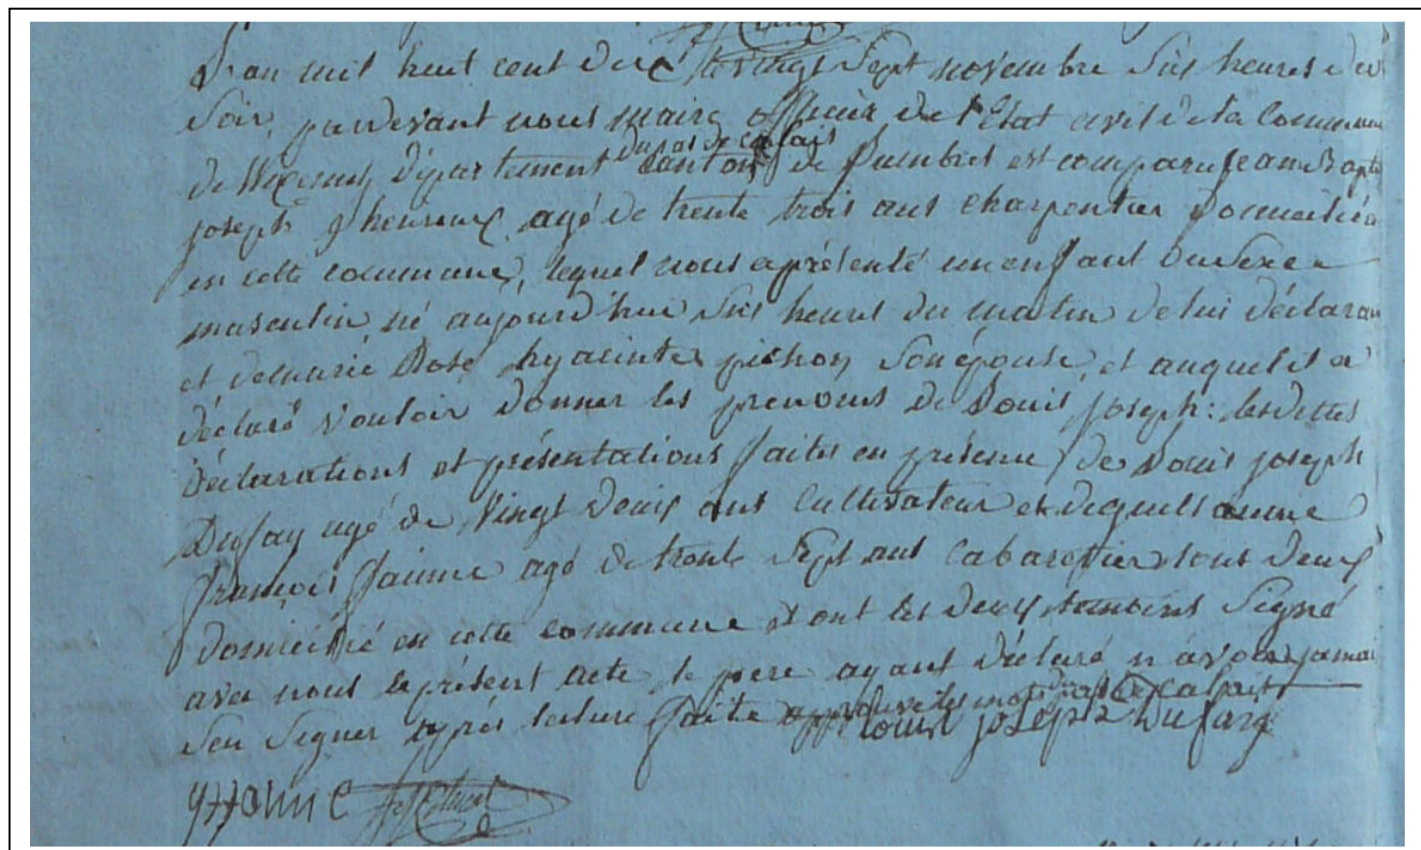 L'an mil huit cent dix le vingt Sept novembre Six heures du
Soir, pardevant nous maire officier de l'Etat civil de la Commune
du pas de calais
de Wismes département canton de Lumbres est comparu Jean Bapte
joseph lheureux agé de trente trois ans charpentier domicilié
en cette commune, lequel nous a présenté un enfant du Sexe
masculin né aujourd'hui Six heures du matin de lui déclarant
et de marie Rose hyacinte pichon Son épouse, et auquel il a
déclaré vouloir donner les prenoms de Louis joseph : lesdittes
déclarations et présentations faites en présence de Louis joseph
Dufay agé de Vingt deux ans Cultivateur et de
françois faune agé de trente Sept ans Cabaretier tout deux
domicilié en cette commune et ont les deux temoins Signé
avec nous le présent acte le pere ayant déclaré n'avoir jamai
Seu Signer après lecture faite approuvé les mots du pas de calais
louis joseph Dufay